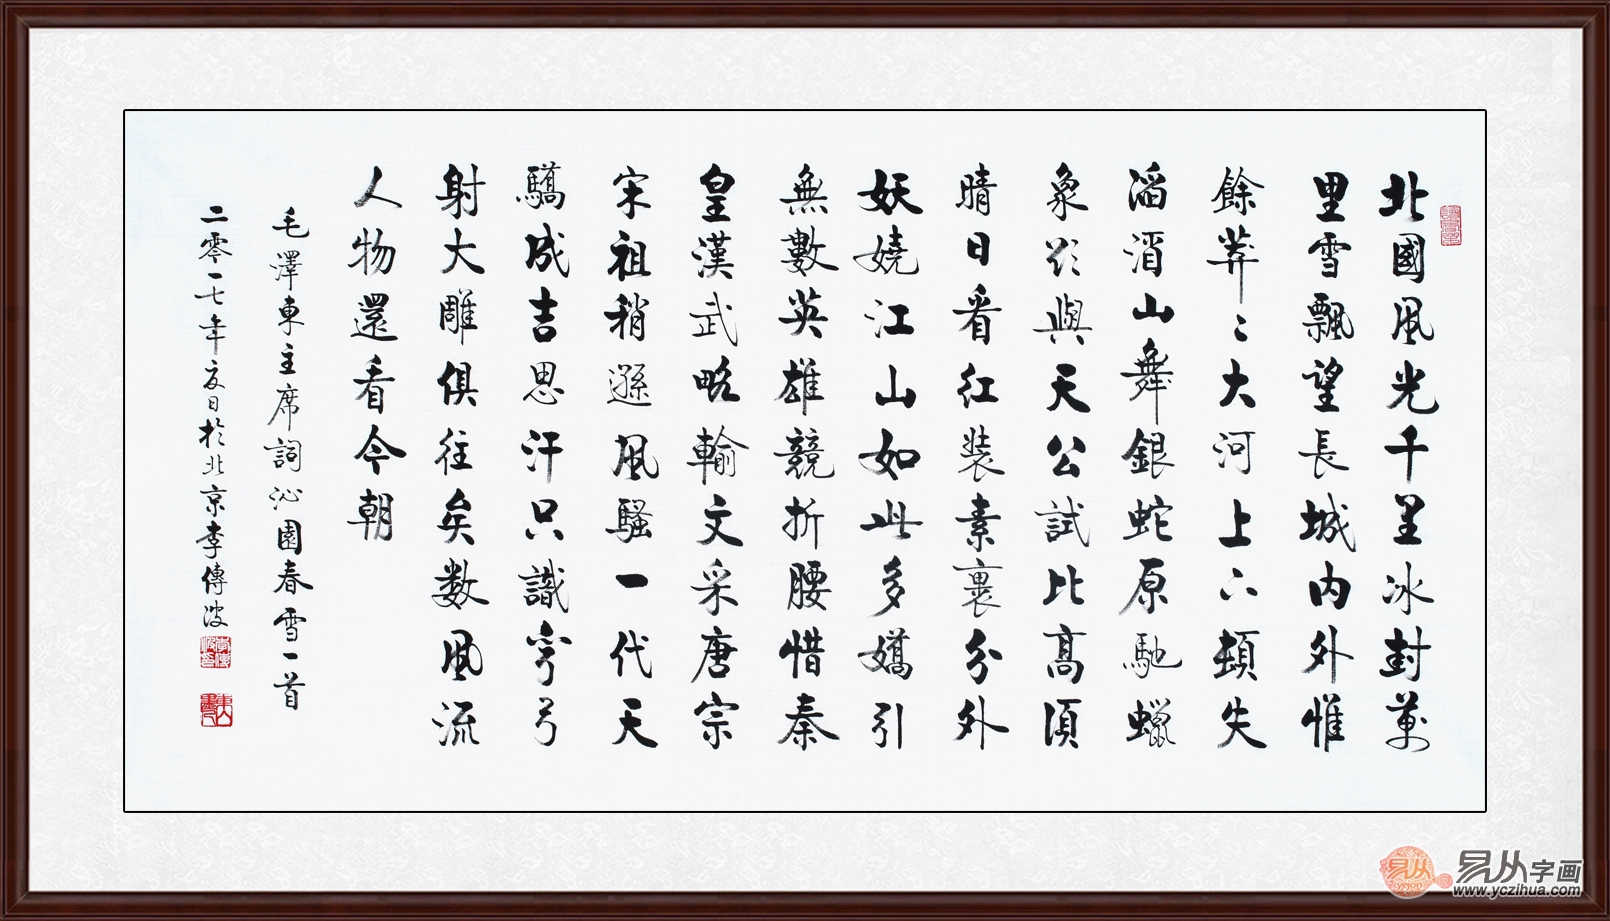 北國風光千里冰封萬
里雪飄望長城内外惟
餘莽〻大河上下頓失
滔滔山舞銀蛇原馳蠟
象欲與天公試比高須
晴日看紅裝素裹分外
妖嬈江山如此多嬌引
無數英雄競折腰惜秦
皇漢武略輸文采唐宗
宋祖稍遜風騷一代天
驕成吉思汗只識彎弓
射大雕俱往矣数風流
人物還看今朝
毛澤東主席詞沁園春雪一首
二零一七年夏日於北京李傳波
易从字画
www.yczihua.com